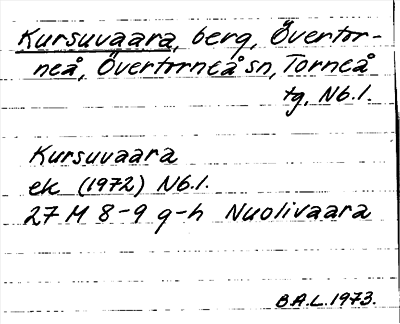 Kursuvaara, berg, Övertor-
neå, Övertorneå sn, Torneå
tg, Nb.l.
Kursuvaara
ek (1972) Nb.l.
27 M 8-9 g-h Nuolivaara
B.A.L. 1973.